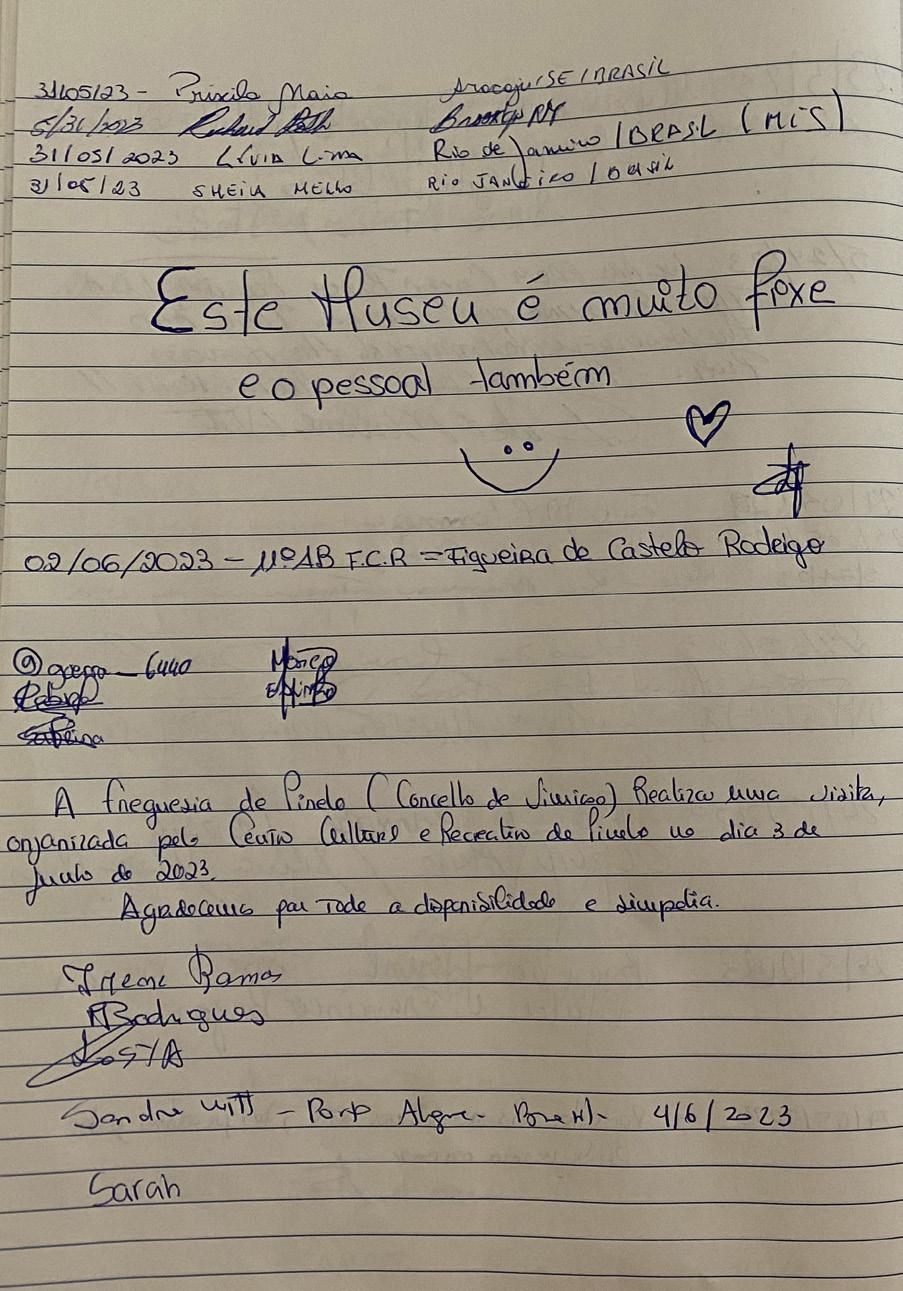 31/05/23 - Priscila Maia Aracaju/SE/BRASIL
5/31/2023 Richard Brooklyn NY
31/05/2023 LÍVIA Lima Rio de Janeiro/BRASIL (MiS)
31/05/23 SHEILA MELLO RIO JANEIRO/BRASIL
Este Museu é muito fixe
e o pessoal também
02/06/2023 - 11º AB F.C.R = Figueira de Castelo Rodrigo
A freguesia de Pinelo (Concelho de Vimioso) Realizou uma visita,
organizada pelo Centro Cultural e Recreativo de Pinelo no dia 3 de
Junho de 2023.
Agradecemos por toda a disponibilidade e simpatia.
Irene Ramos
Rodrigues
Costa
Sandra Witt - Porto Alegre - Brasil - 4/6/2023
Sarah